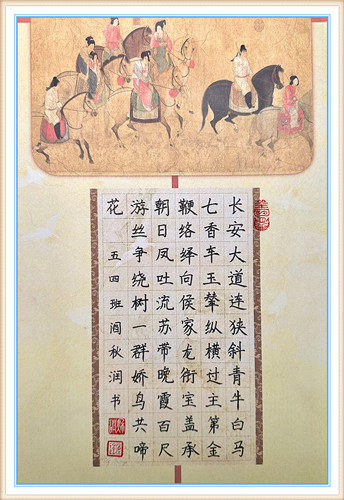 长安大道连狭斜青牛白马
七香车玉辇纵横过主第金
鞭络绎向侯家龙衔宝盖承
朝日凤吐流苏带晚霞百尺
游丝争绕树一群娇鸟共啼
花 五四班阎秋润书